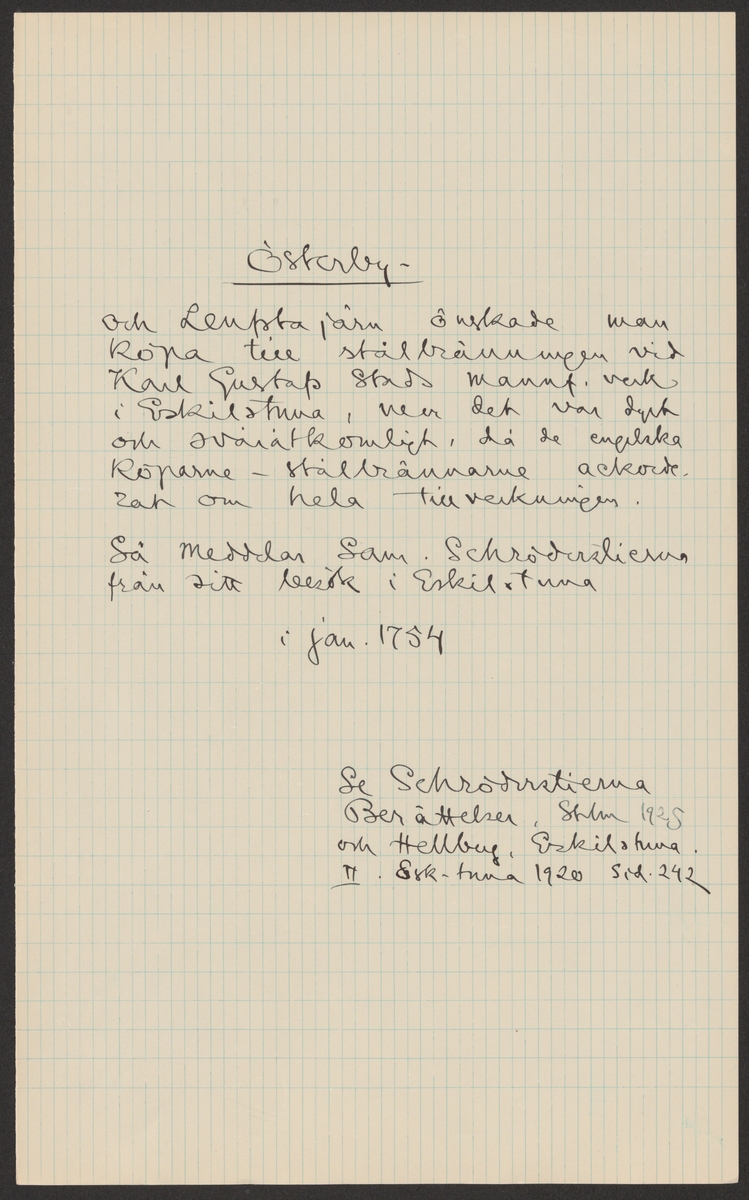 Österby-
och Leufsta järn önskade man
köpa till stålbränningen vid
Karl Gustafs Stads manuf. verk
i Eskilstuna, men det var dyrt
och svåråtkomligt, då de engelska
köparne - stålbrännarne ackorde-
rat om hela tillverkningen.
Så meddelar Sam. Schröderstierna
från sitt besök i Eskilstuna
i jan. 1754
Se Schröderstierna
Berättelser, Sthlm 1925
och Hellberg, Eskilstuna.
II. Esk-tuna 1920 Sid. 242